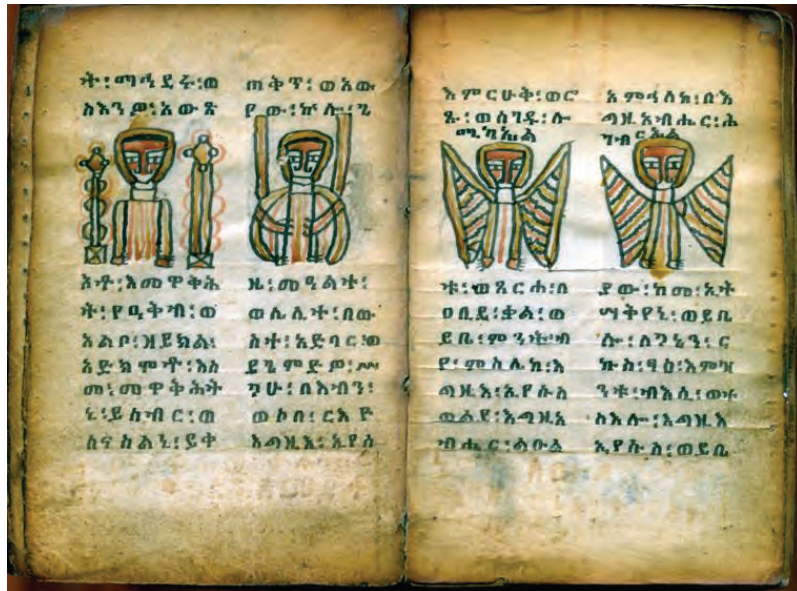 ት፡ማኅደሩ፡ወ
ስእንዎ፡አውጽ
እቶ፡እመዋቅሕ
ት፡የዒቅብ፡ወ
አልቦ፡ዝይክል፡
አድክሞቶ፡እስ
መ፡መዋቅሕት
ኒ፡ይሰብር፡ወ
ሰናስልኒ፡ይቀ
ጠቅጥ፡ወአው
የው፡ኵሎ፡ጊ
ዜ፡መዓልተ፡
ወሌሊተ፡በው
ስተ፡አድባር፡ወ
ይጌምድዎ፡ሥ
ጋሁ፡በእብን፡
ወሶበ፡ርእዮ
እግዚእ፡ኢየሱ
እምርሁቅ፡ወሮ
ጹ፡ወሰገዱ፡ሎ
ሚካኤል
ቱ፡ወጸርሐ፡በ
ዐቢይ፡ቃል፡ወ
ይቤ፡ምንት፡ብ
የ፡ምስሌከ፡እ
ግዚእ፡ኢየሱስ
ወልደ፡እግዚአ
ብሔር፡ልዑል
አምላክ፡በእ
ግዚአብሔር፡ሕ
ገብርኤል
ያው፡ከመ፡ኢት
ሣቅየኒ፡ወይቤ
ሎ፡ለጋኔን፡ር
ኩስ፡ፃዕ፡እምዝ
ንቱ፡ብእሲ፡ወተ
ስእሎ፡እግዚእ
ኢየሱስ፡ወይቤ